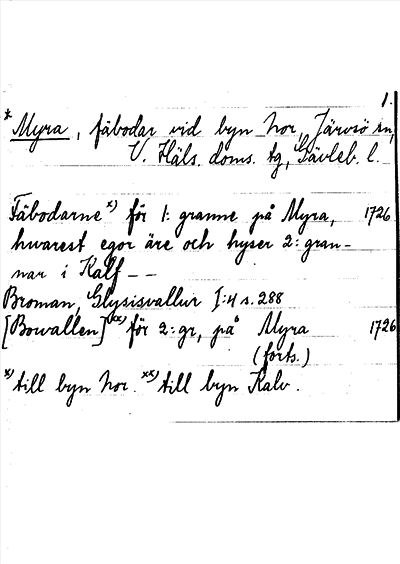 1.
* Myra, fäbodar vid byn Nor, Järvsö sn,
V. Häls. doms. tg, Gävleb. l.
Fäbodarne x) för 1: granne på Myra, 1726
hwarest egor äre och hyser 2: gran-
nar i Kalf --
Broman, Glysisvallur I:4 s. 288
[Bowallen] xx) för 2: gr, på Myra 1726
(forts.)
x) till byn Nor. xx) till byn Kalv.